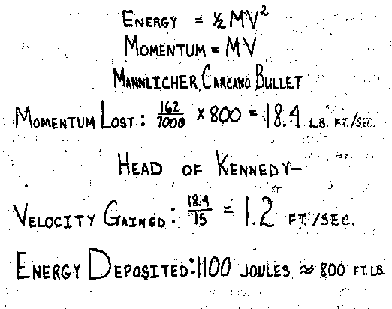 ENERGY = ½ MV²
MOMENTUM = MV
MANNLICHER CARCANO BULLET
MOMENTUM LOST: 162/7000 × 800 = 18.4 LB. FT./SEC.
HEAD OF KENNEDY—
VELOCITY GAINED: 18.4/15 = 1.2 FT./SEC.
ENERGY DEPOSITED: 1100 JOULES ≈ 800 FT. LB.